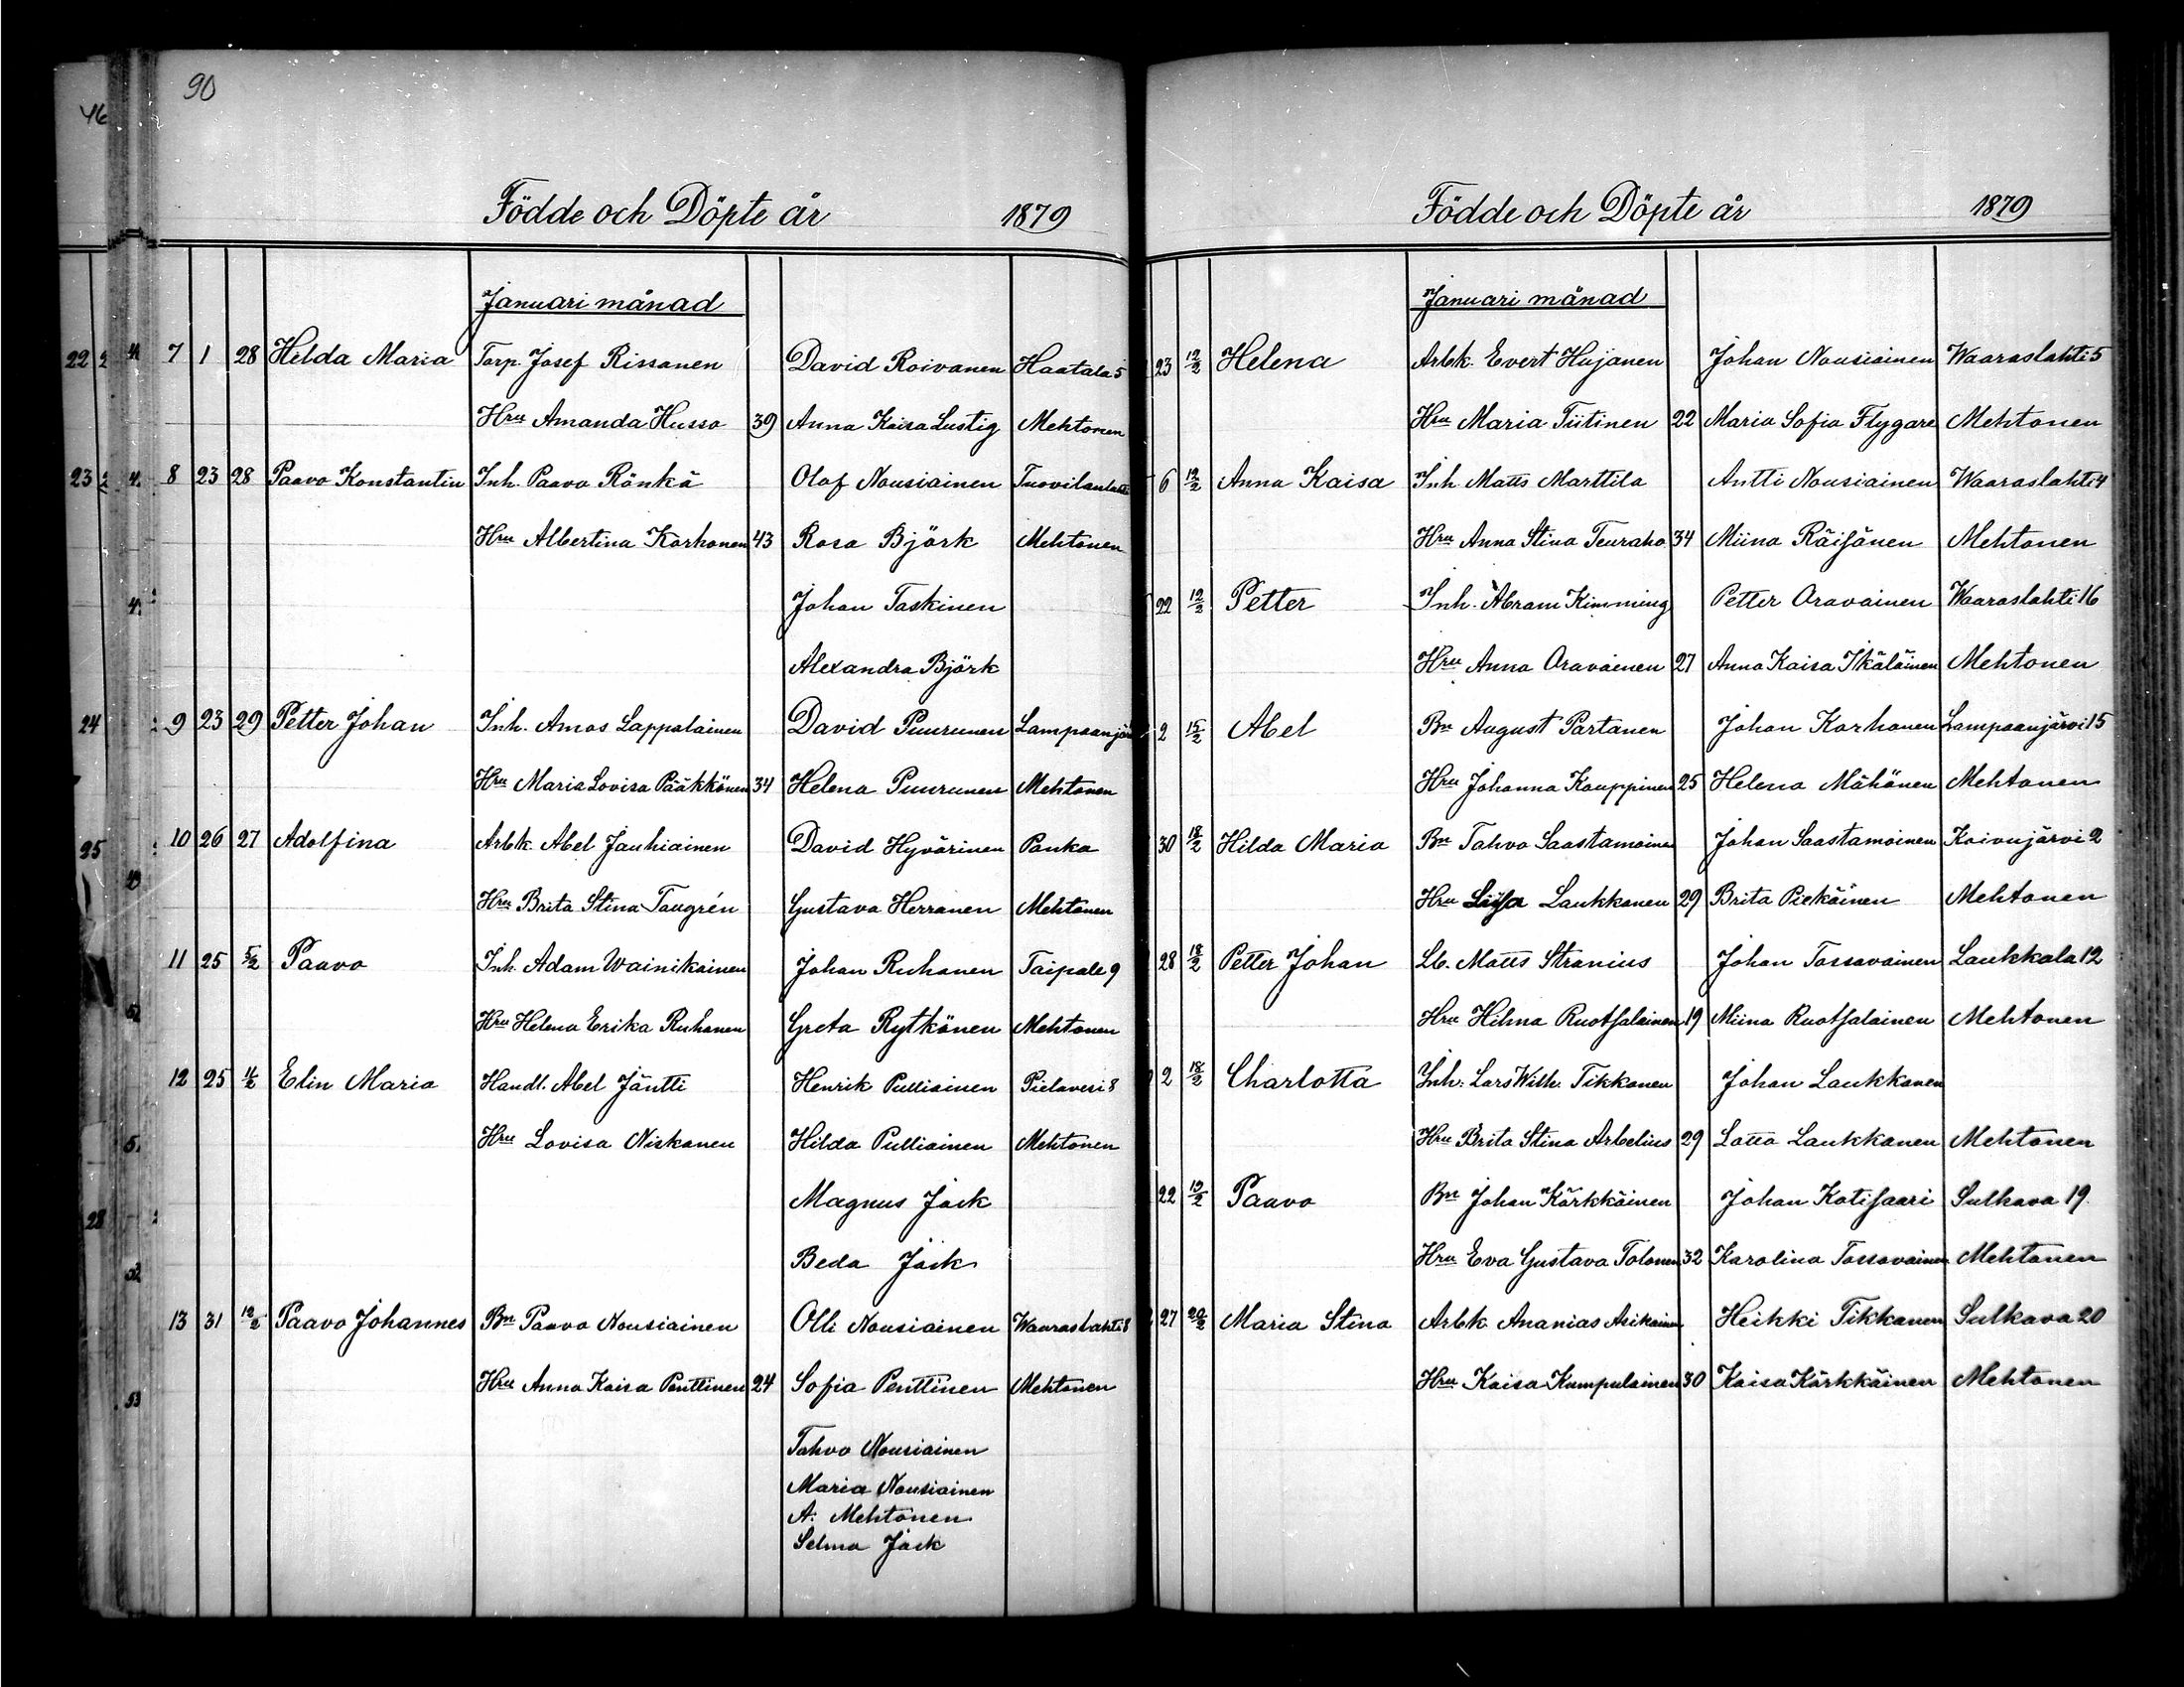 90
46
Födde och Döpte år 1879
Januari månad
7 1 28 Helda Maria Torp. Josef Rissanen David Roivanen Haatala 5
Hru Amanda Husso 39 Anna Kaisa Lustig Mehtonen
8 23 28 Paavo Konstantin Inh. Paavo Rönkä Olof Nousiainen
Hru Albertina Korhonen 43 Rosa Björk Mehtonen
Johan Taskinen
Alexandra Björk
9 23 29 Petter Johan Inh. Amos Lappalainen David Puurunen
Hru Maria Lovisa Pääkkönen 34 Helena Puurunen Mehtonen
10 26 27 Adolfina Arbk. Abel Jauhiainen David Hyvärinen Panka
Hru Brita Stina Taugrén Gustava Herranen Mehtonen
11 25 5/2 Paavo Inh. Adam Wainikainen Johan Ruhanen Taipale 9
Hru Helena Erika Ruhanen Greta Rytkönen Mehtonen
12 25 11/2 Elin Maria Handl. Abel Jäntti Henrik Pulliainen Pielavesi 8
Hru Lovisa Niskanen Hilda Pulliainen Mehtonen
Magnus Jack
Beda Jack
13 31 12/2 Paavo Johannes Bn Paavo Nousiainen Olli Nousiainen Waaraslahti 8
Hru Anna Kaisa Penttinen 24 Sofia Penttinen Mehtonen
Tahvo Nousiainen
Maria Nousiainen
A. Mehtonen
Selma Jack
Födde och Döpte år 1879
Januari månad
23 12/2 Helena Arbk. Evert Hujanen Johan Nousiainen Waaraslahti 5
Hru Maria Tiitinen 22 Maria Sofia Flygare Mehtonen
6 12/2 Anna Kaisa Inh. Matts Marttila Antti Nousiainen Waaraslahti 4
Hru Anna Stina Teuraho 34 Miina Räisänen Mehtonen
22 12/2 Petter Inh. Abram Kimming Petter Oravainen Waaraslahti 16
Hru Anna Oravainen 27 Anna Kaisa Ikäläinen Mehtonen
2 15/2 Abel Bn August Partanen Johan Korhonen Lampaanjärvi 15
Hru Johanna Kauppinen 25 Helena Mähönen Mehtonen
30 18/2 Hilda Maria Bn Tahvo Saastamoinen Johan Saastamoinen Koivujärvi 2
Hru Liisa Laukkanen 29 Brita Piekäinen Mehtonen
28 18/2 Petter Johan Lb. Matts Stranius Johan Tossavainen Laukkala 12
Hru Hilma Ruotsalainen 19 Miina Ruotsalainen Mehtonen
2 18/2 Charlotta Inh. Lars Wilh. Tikkanen Johan Laukkanen
Hru Brita Stina Arbelius 29 Lotta Laukkanen Mehtonen
22 19/2 Paavo Bn Johan Kärkkäinen Johan Kotisaari Sulkava 19
Hru Eva Gustava Tolonen 32 Karolina Tossavainen Mehtonen
27 20/2 Maria Stina Arbk Ananias Asikainen Heikki Tikkanen Sulkava 20
Hru Kaisa Kumpulainen 30 Kaisa Kärkkäinen Mehtonen